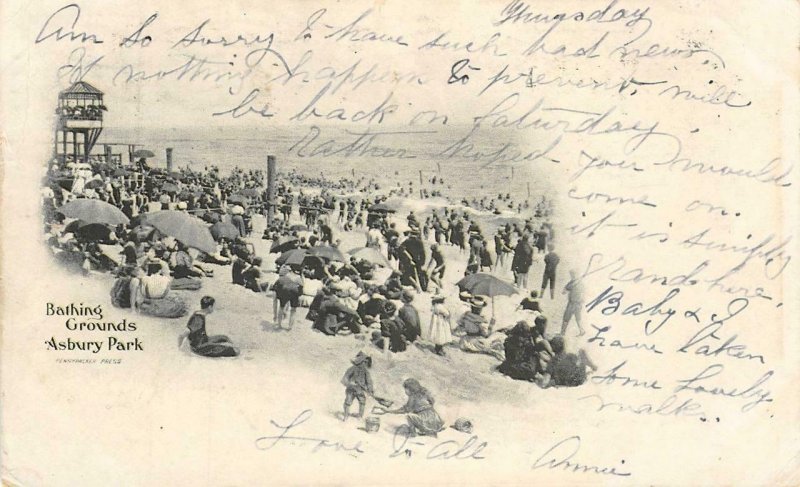 Thursday
Am so sorry to have such bad news,
If nothing happens to prevent, will
be back on Saturday.
Rather hoped you would
come on.
it is simply
grand here,
Baby & I
have taken
some lovely
walks.
Love to all Annie
Bathing
Grounds
Asbury Park
PENNYPACKER PRESS